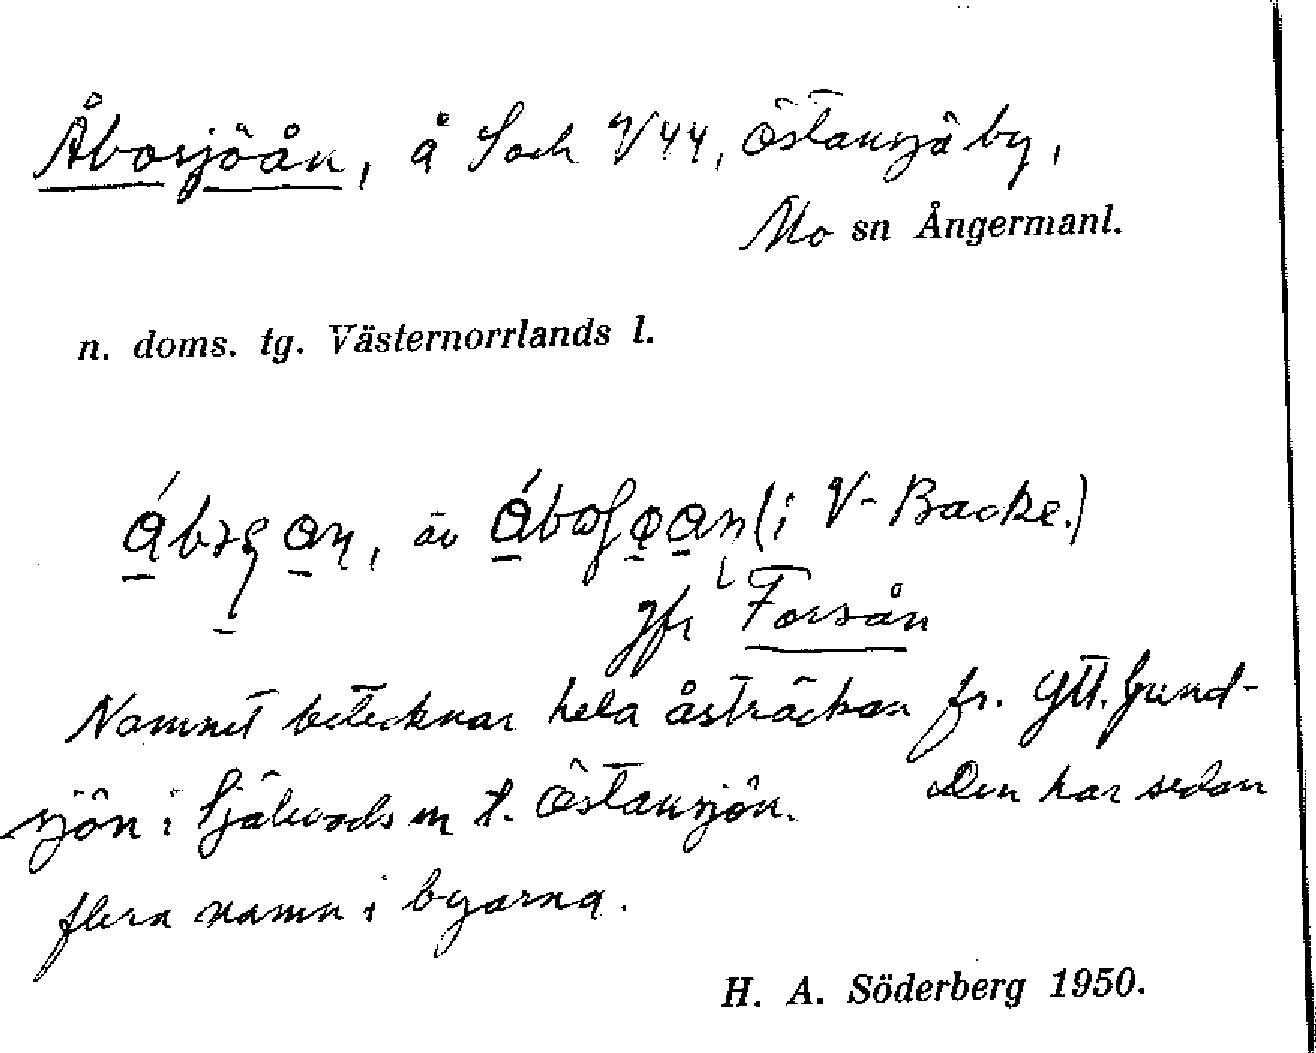 Åbosjöån, å S och V 44, Östansjö by,
Mo sn Ångermanl.
n. doms. tg. Västernorrlands l.
(i V-Backe.)
Jfr Forsån
Namnet betecknar hela åsträckan fr. Ytt. Gund-
sjön i Själevads sn t. Östansjön. Den har sedan
flera namn i byarna.
H. A. Söderberg 1950.